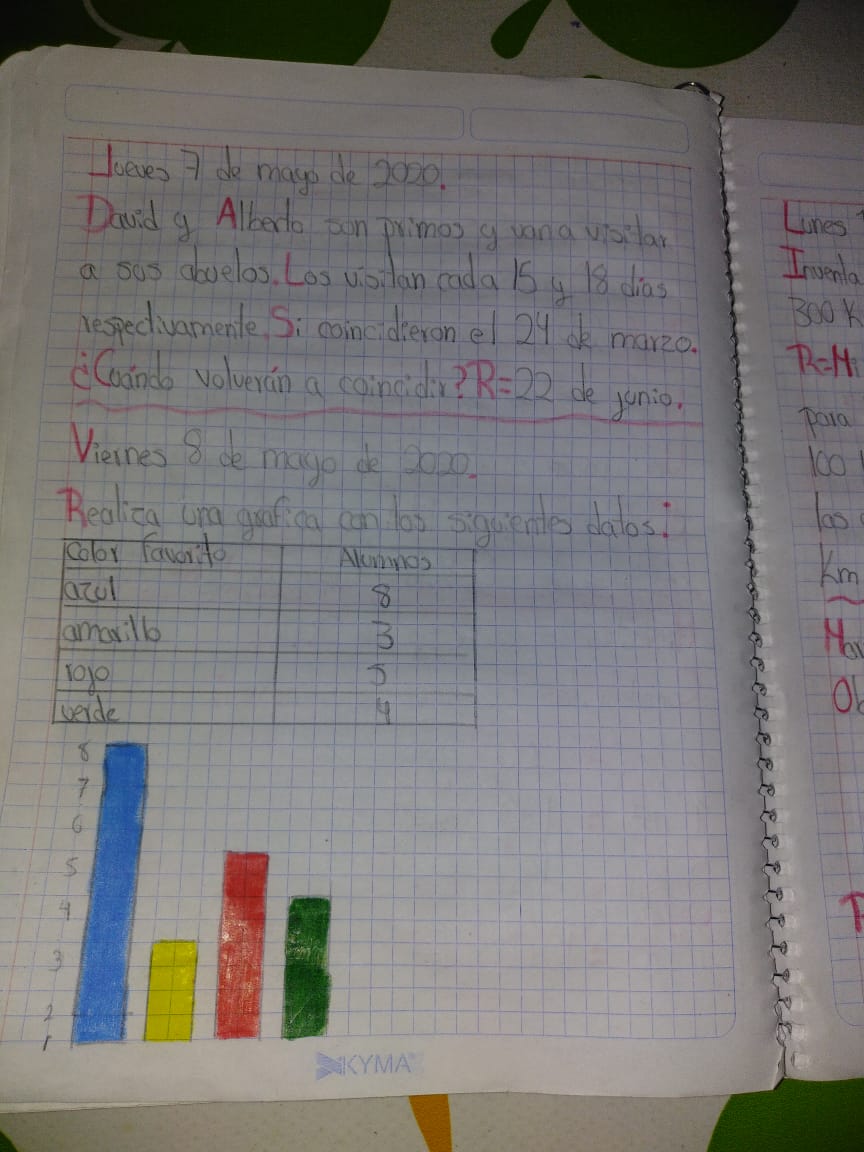 Jueves 7 de mayo de 2020.
David y Alberto son primos y van a visitar
a sus abuelos. Los visitan cada 15 y 18 dias
respectivamente. Si coincidieron el 24 de marzo.
¿Cuándo volverán a coincidir? R=22 de junio.
Viernes 8 de mayo de 2020.
Realiza una grafica con los siguientes datos:
color favorito Alumnos
azul 8
amarillo 3
rojo 5
verde 4
8
7
6
5
4
3
2
1
KYMA
Lunes
Inventa
300 K
R=M
para
100
las
Km